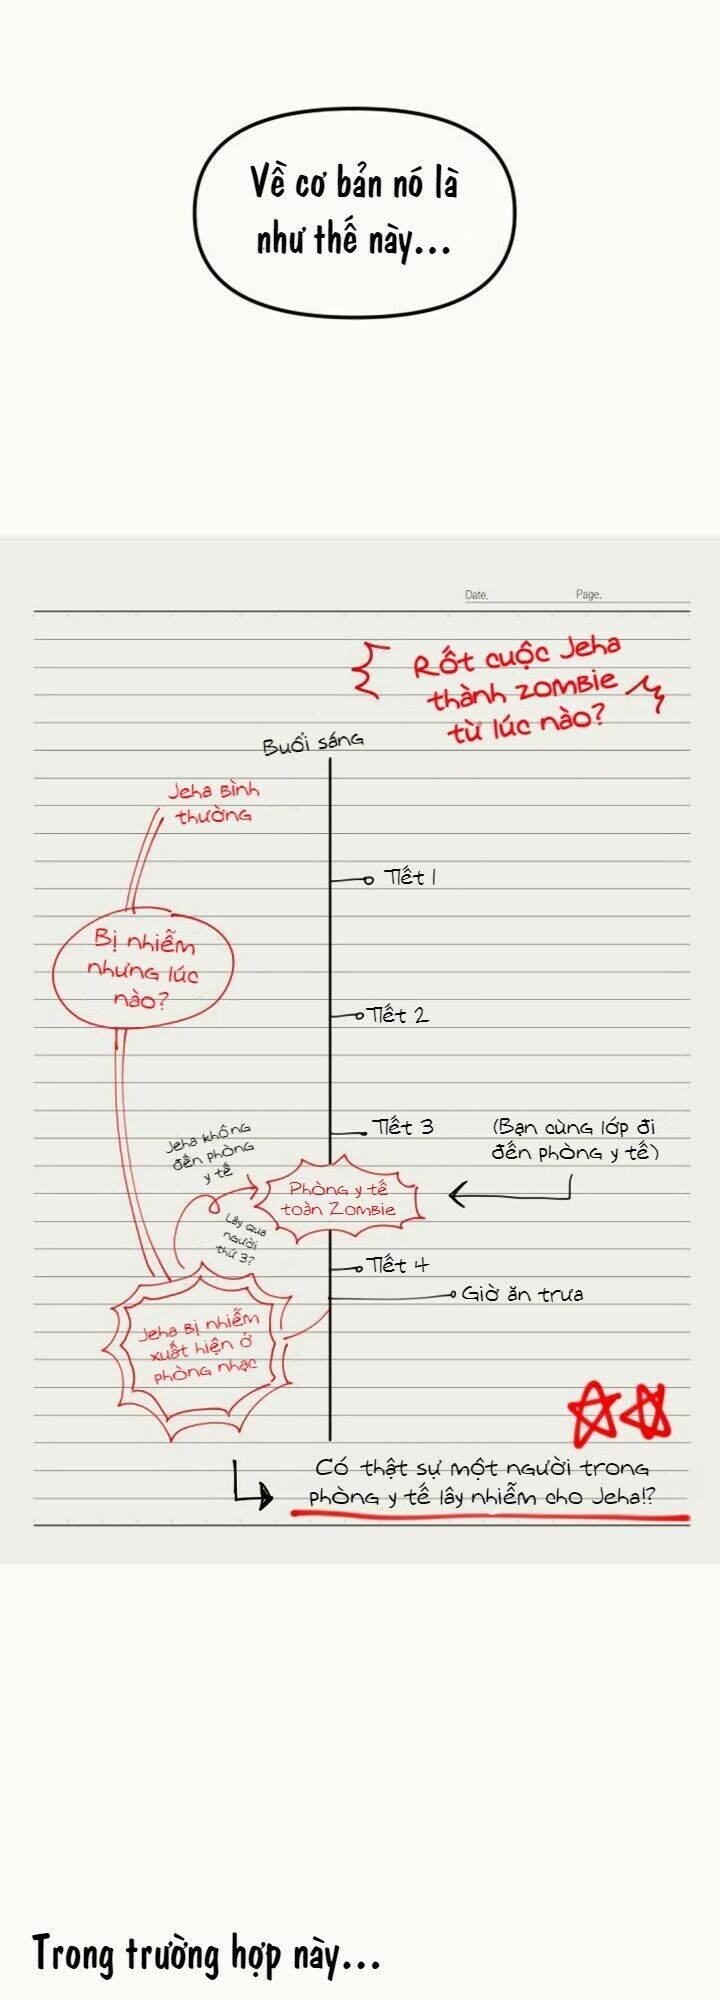 Về cơ bản nó là
như thế này...
Date.
Page.
Rốt cuộc Jeha
thành zombie
từ lúc nào?
Buổi sáng
Jeha bình
thường
Tiết 1
Bị nhiễm
nhưng lúc
nào?
Tiết 2
Tiết 3
(Bạn cùng lớp đi
đến phòng y tế)
Jeha không
đến phòng
y tế
Phòng y tế
toàn Zombie
Lây qua
người
thứ 3?
Tiết 4
Giờ ăn trưa
Jeha bị nhiễm
xuất hiện ở
phòng nhạc
Có thật sự một người trong
phòng y tế lây nhiễm cho Jeha!?
Trong trường hợp này...